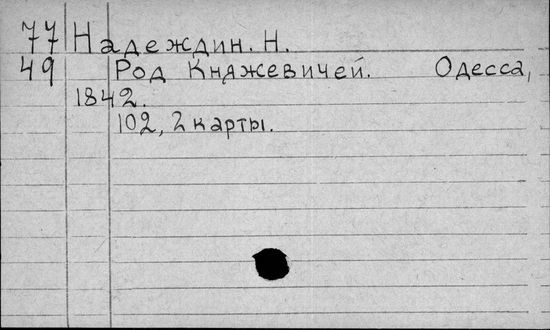 77 Надеждин. Н.
49 Род Княжевичей. Одесса,
1842.
102, 2 карты.